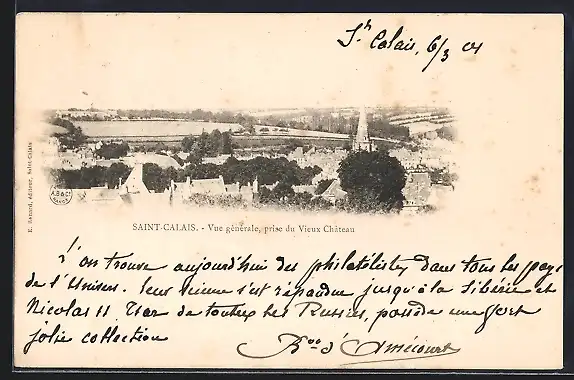 St Calais, 6/3 04
E. Renard, éditeur, Saint-Calais
A.B & Cie
NANCY
SAINT-CALAIS. - Vue générale, prise du Vieux Château
L'on trouve aujourd'hui des philatélistes dans tous les pays
de l'Univers. leur s'est répandue jusqu'à la Sibérie et
Nicolas II Tzar de toutes les Russies, possède une fort
jolie collection
d'Amécourt